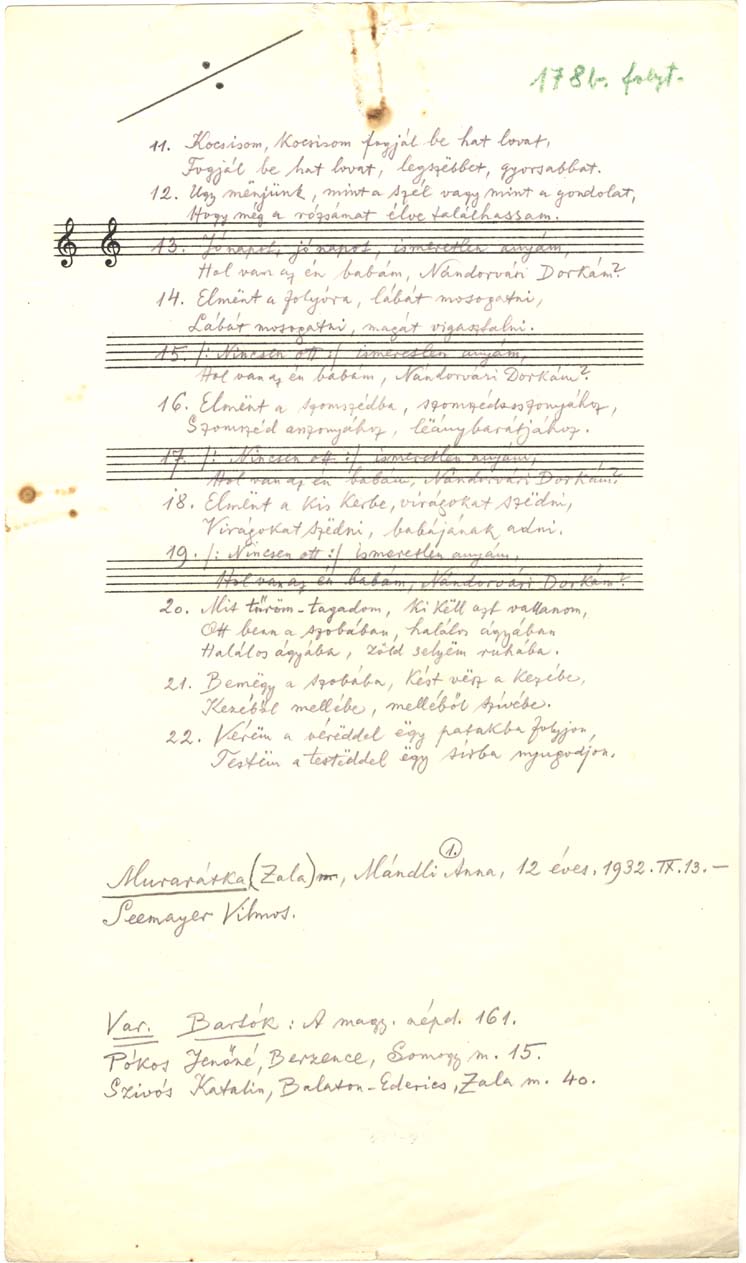 178b. folyt.
11. Kocsisom, kocsisom fogjál be hat lovat,
Fogjál be hat lovat, legszëbbet, gyorsabbat.
12. Ugy mënjünk, mint a szél vagy mint a gondolat,
Hogy még a rózsámat élve találhassam.
13. Jónapot, jónapot, ismeretlen anyám,
Hol van az én babám, Nándorvári Dorkám?
14. Elmënt a folyóra, lábát mosogatni,
Lábát mosogatni, magát vigasztalni.
15. /: Nincsen ott :/ ismeretlen anyám,
Hol van az én babám, Nándorvári Dorkám?
16. Elmënt a szomszédba, szomszédasszonyához,
Szomszéd asszonyához, lëánybarátjához.
17. /: Nincsen ott :/ ismeretlen anyám,
Hol van az én babám, Nándorvári Dorkám?
18. Elmënt a kis kerbe, virágokat szëdni,
Virágokat szëdni, babájának adni.
19. /: Nincsen ott :/ ismeretlen anyám,
Hol van az én babám, Nándorvári Dorkám?
20. Mit tűröm-tagadom, ki këll azt vallanom,
Ott benn a szobában, halálos ágyában
Halálos ágyába, zöld selyëm ruhába.
21. Bemëgy a szobába, kést vësz a kezébe,
Kezéből mellébe, melléből szívébe.
22. Vérëm a vérëddel ëgy patakba folyjon,
Testëm a testëddel ëgy sírba nyugodjon.
1.
Murarátka (Zala) m, Mándli Anna, 12 éves. 1932. IX. 13. –
Seemayer Vilmos.
Var. Bartók: A magy. népd. 161.
Pókos Jenőné, Berzence, Somogy m. 15.
Szivós Katalin, Balaton-Ederics, Zala m. 40.